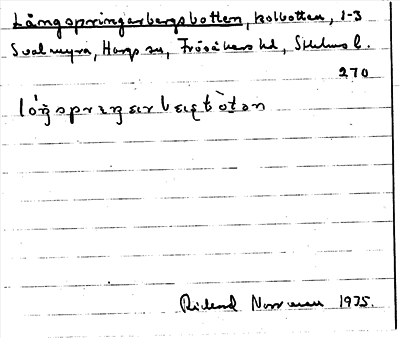 Långspringarbergsbotten, kolbotten, 1-3
Svalmyra, Hargs sn, Frösåkers hd, Sthlms l.
270
Richard Norrman 1975.